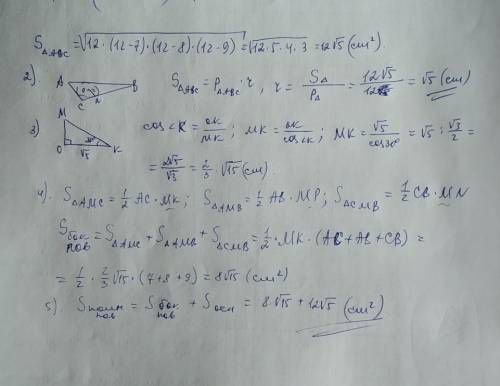 S△ABC = √(12·(12-7)·(12-8)·(12-9)) = √(12·5·4·3) = 12√5 (cm²).
2). A B C r S△ABC = P△ABC · r, r = S△/P△ = 12√5/12 = √5 (cm)
3) M O K √5 30° cos∠K = OK/MK; MK = OK/cos∠K; MK = √5/cos30° = √5 : √3/2 =
= 2√5/√3 = 2/3 · √15 (cm)
4). S△AMC = 1/2 AC · MK; S△AMB = 1/2 AB · MP; S△CMB = 1/2 CB · MN
Sбок пов = S△AMC + S△AMB + S△CMB = 1/2 · MK · (AC + AB + CB) =
= 1/2 · 2/3 √15 · (7+8+9) = 8√15 (cm²)
5) Sполн пов = Sбок пов + Sосн = 8√15 + 12√5 (cm²)